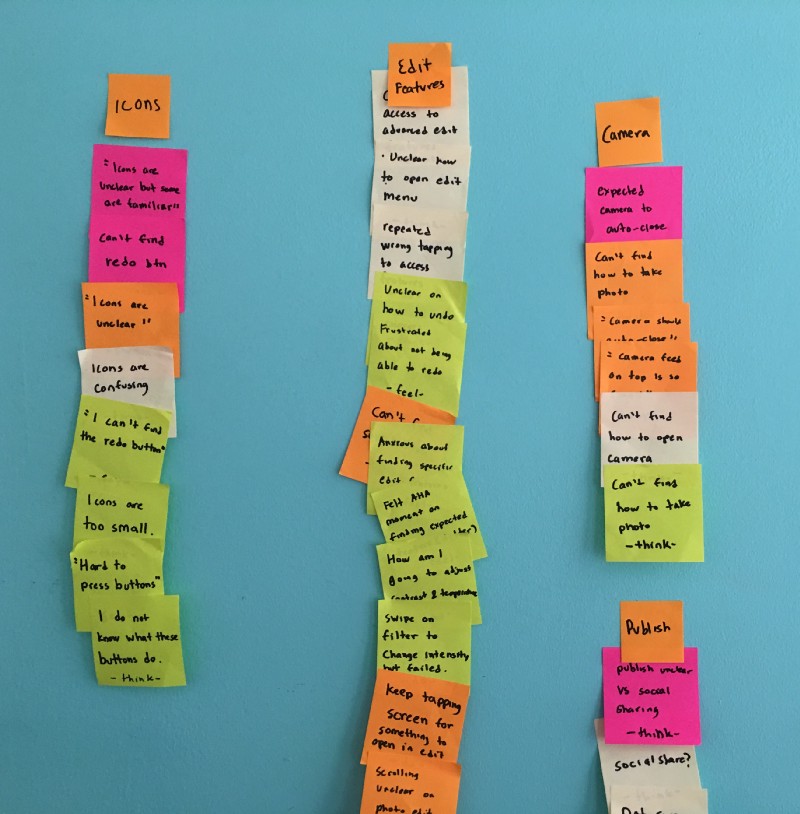 Icons
"Icons are
unclear but some
are familiar"
Can't find
redo btn
"Icons are
unclear"
Icons are
confusing
"I can't find
the redo button"
Icons are
too small.
"Hard to
press buttons"
I do not
know what these
buttons do.
-think-
Edit
Features
access to
advanced edit
• Unclear how
to open edit
menu
repeated
wrong tapping
to access
Unclear on
how to undo
Frustrated
about not being
able to redo
-feel-
Can't
Anxious about
finding specific
edit
Felt AHA
moment on
finding expected
How am I
going to adjust
contrast & temperature
Swipe on
filter to
Change intensity
but failed.
Keep tapping
screen for
something to
open in edit
Scrolling
unclear on
photo edit
Camera
expected
camera to
auto-close
Can't find
how to take
photo
"camera should
auto-close"
"camera feed
on top is so
Can't find
how to open
camera
Can't find
how to take
photo
-think-
Publish
publish unclear
VS social
sharing
-think-
social share?
-think-